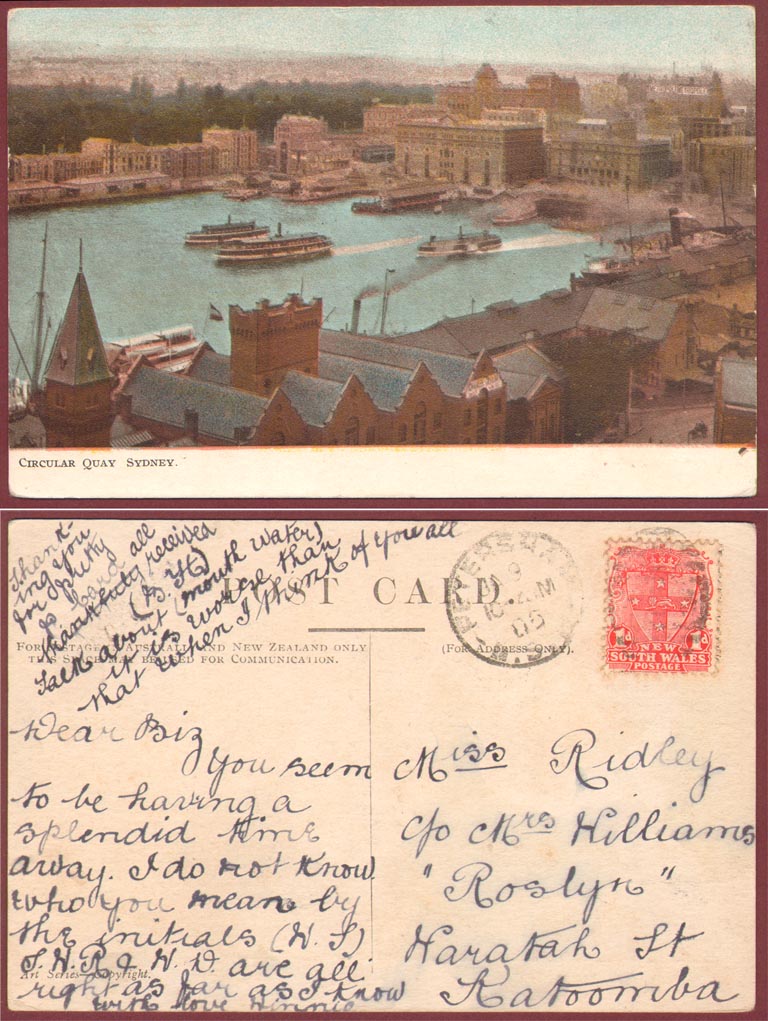 CIRCULAR QUAY SYDNEY.
Thank-
ing you
for
P. Card all
thankfully received
Talk about (mouth water)
it is worse than
that when I think of you all
POST CARD.
FOR POSTAGE IN AUSTRALIA AND NEW ZEALAND ONLY
THIS SPACE MAY BE USED FOR COMMUNICATION.
(FOR ADDRESS ONLY).
PETERSHAM
9
10 AM
05
1d 1d
NEW
SOUTH WALES
POSTAGE
Dear Biz
You seem
to be having a
splendid time
away. I do not know
who you mean by
the initials (W. S)
& W. D. are all
right as far as I know
with love Winnie
Art Series Copyright.
Miss Ridley
c/o Mrs Williams
"Roslyn"
Waratah St
Katoomba